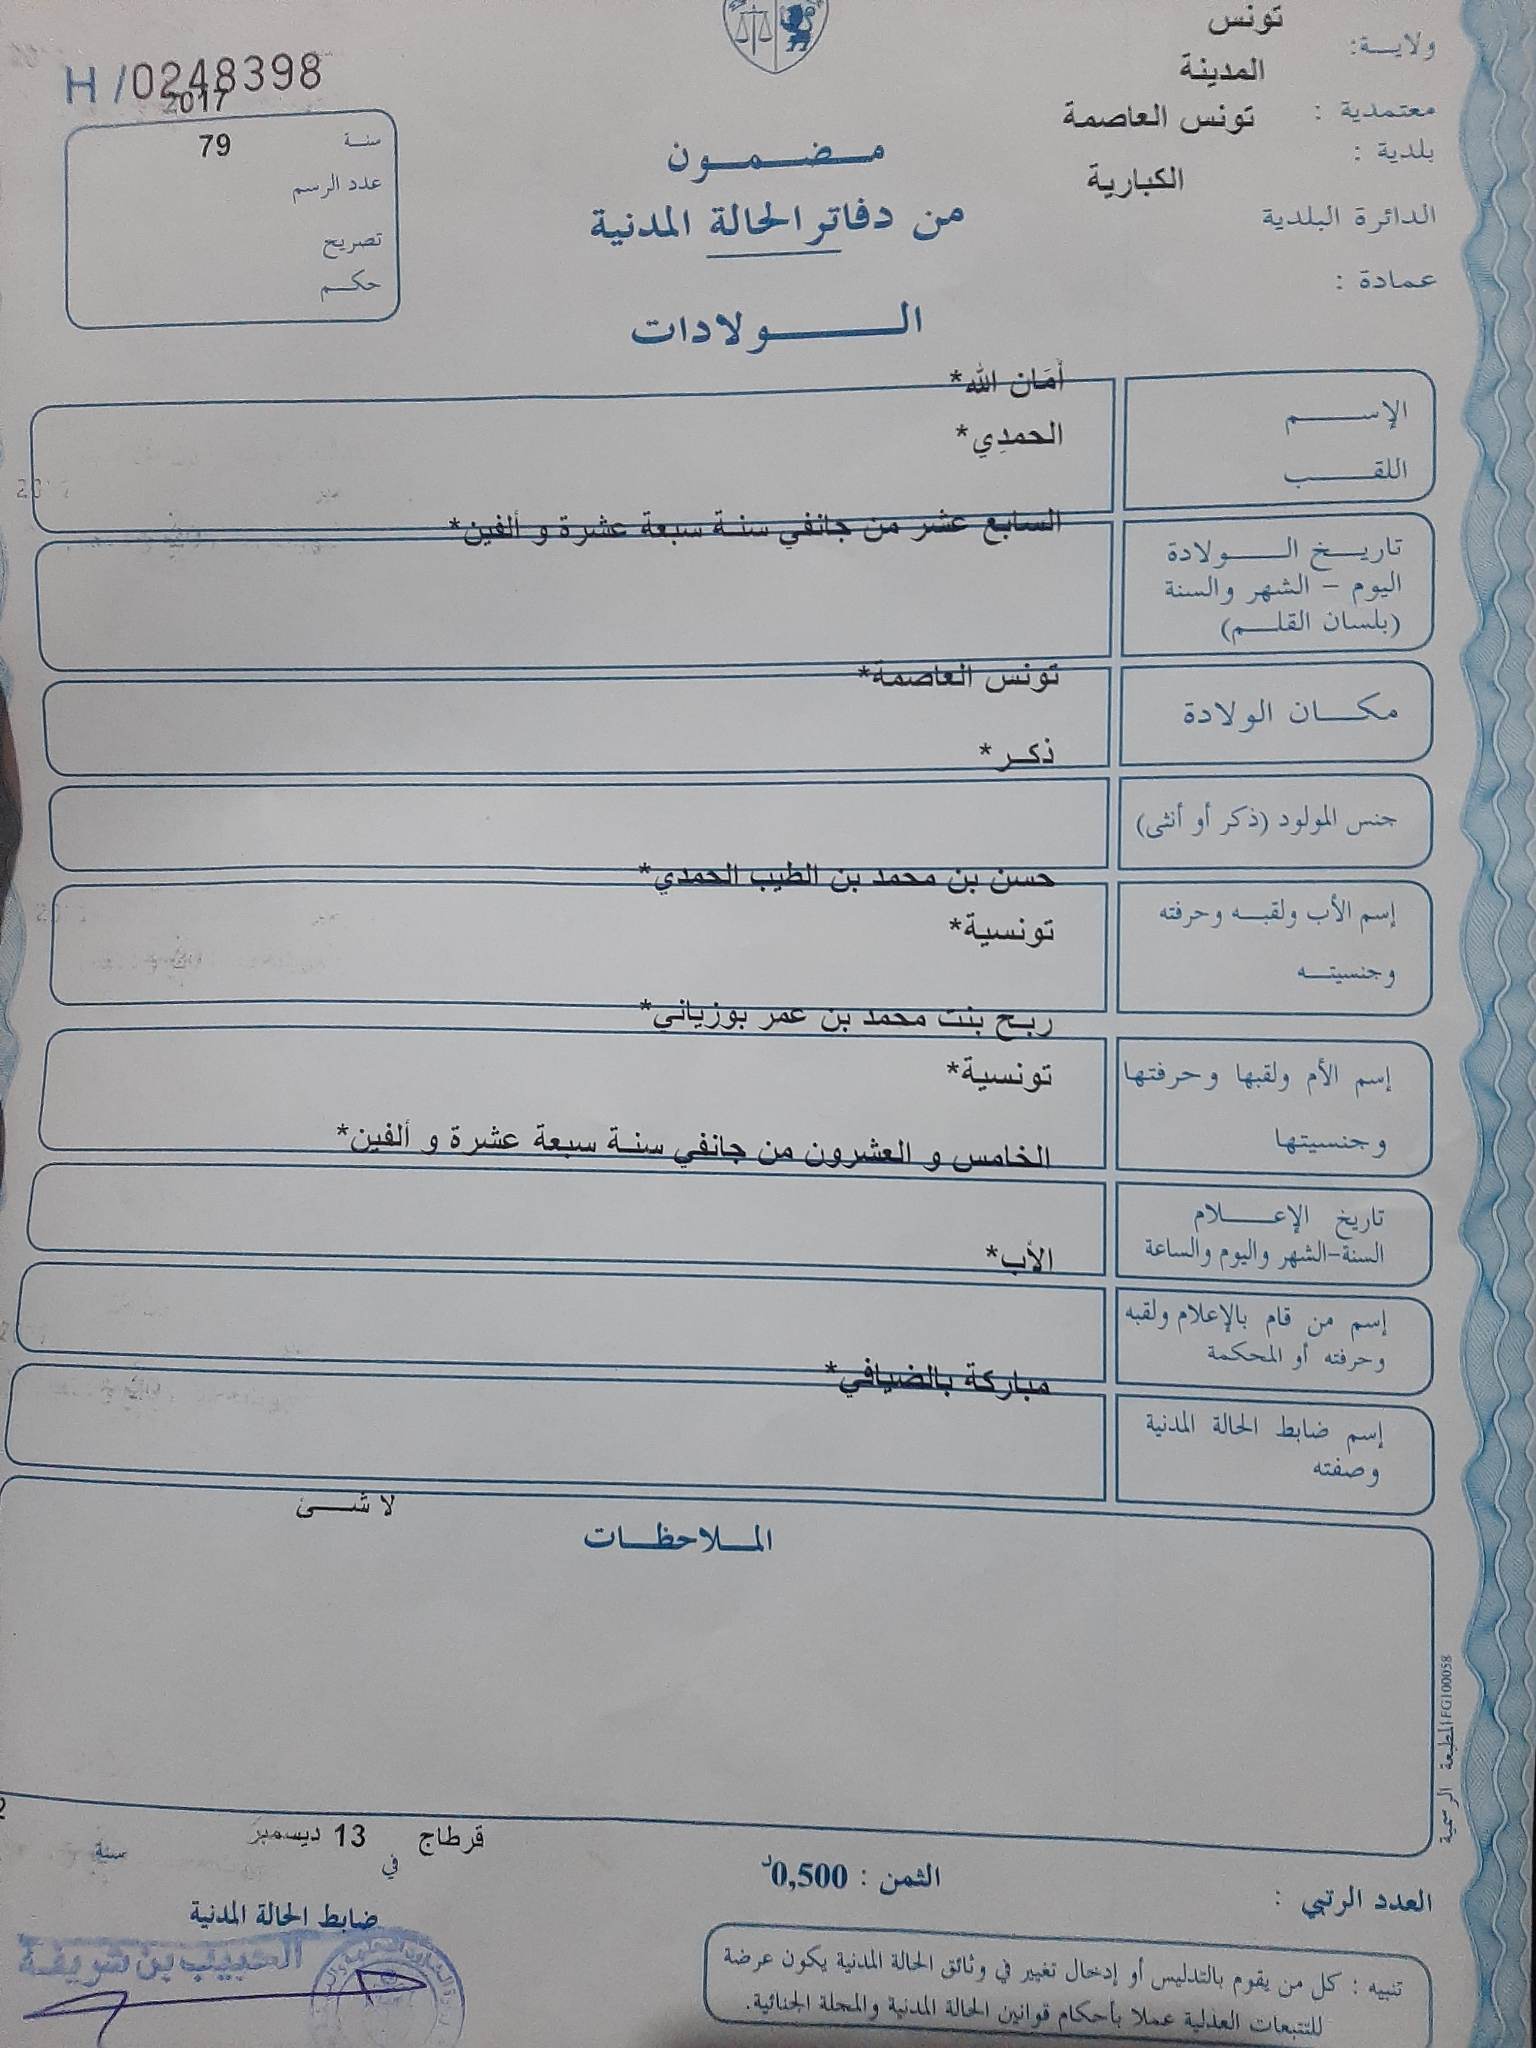 ولاية: تونس
المدينة
معتمدية :
تونس العاصمة
بلدية :
الكبارية
الدائرة البلدية
عمادة :
H /0248398
2017
سنة 79
عدد الرسم
تصريح
حكم
مضمون
من دفاتر الحالة المدنية
الولادات
أمَان الله*
الإسم
الحمدِي*
اللقب
السابع عشر من جانفي سنة سبعة عشرة و ألفين*
تاريخ الولادة
اليوم – الشهر والسنة
(بلسان القلم)
تونس العاصمة*
مكان الولادة
ذكر*
جنس المولود (ذكر أو أنثى)
حسن بن محمد بن الطيب الحمدي*
إسم الأب ولقبه وحرفته
تونسية*
وجنسيته
ربح بنت محمد بن عمر بوزياني*
إسم الأم ولقبها وحرفتها
تونسية*
وجنسيتها
الخامس و العشرون من جانفي سنة سبعة عشرة و ألفين*
تاريخ الإعلام
السنة-الشهر واليوم والساعة
الأب*
إسم من قام بالإعلام ولقبه
وحرفته أو المحكمة
مباركة بالضيافي*
إسم ضابط الحالة المدنية
وصفته
لا شئ
الملاحظات
المطبعة الرسمية FG100058
قرطاج في 13 ديسمبر سنة
الثمن : 0,500د
العدد الرتبي :
ضابط الحالة المدنية
الحبيب بن شريفة
تنبيه : كل من يقوم بالتدليس أو إدخال تغيير في وثائق الحالة المدنية يكون عرضة
للتتبعات العدلية عملا بأحكام قوانين الحالة المدنية والمجلة الجنائية.